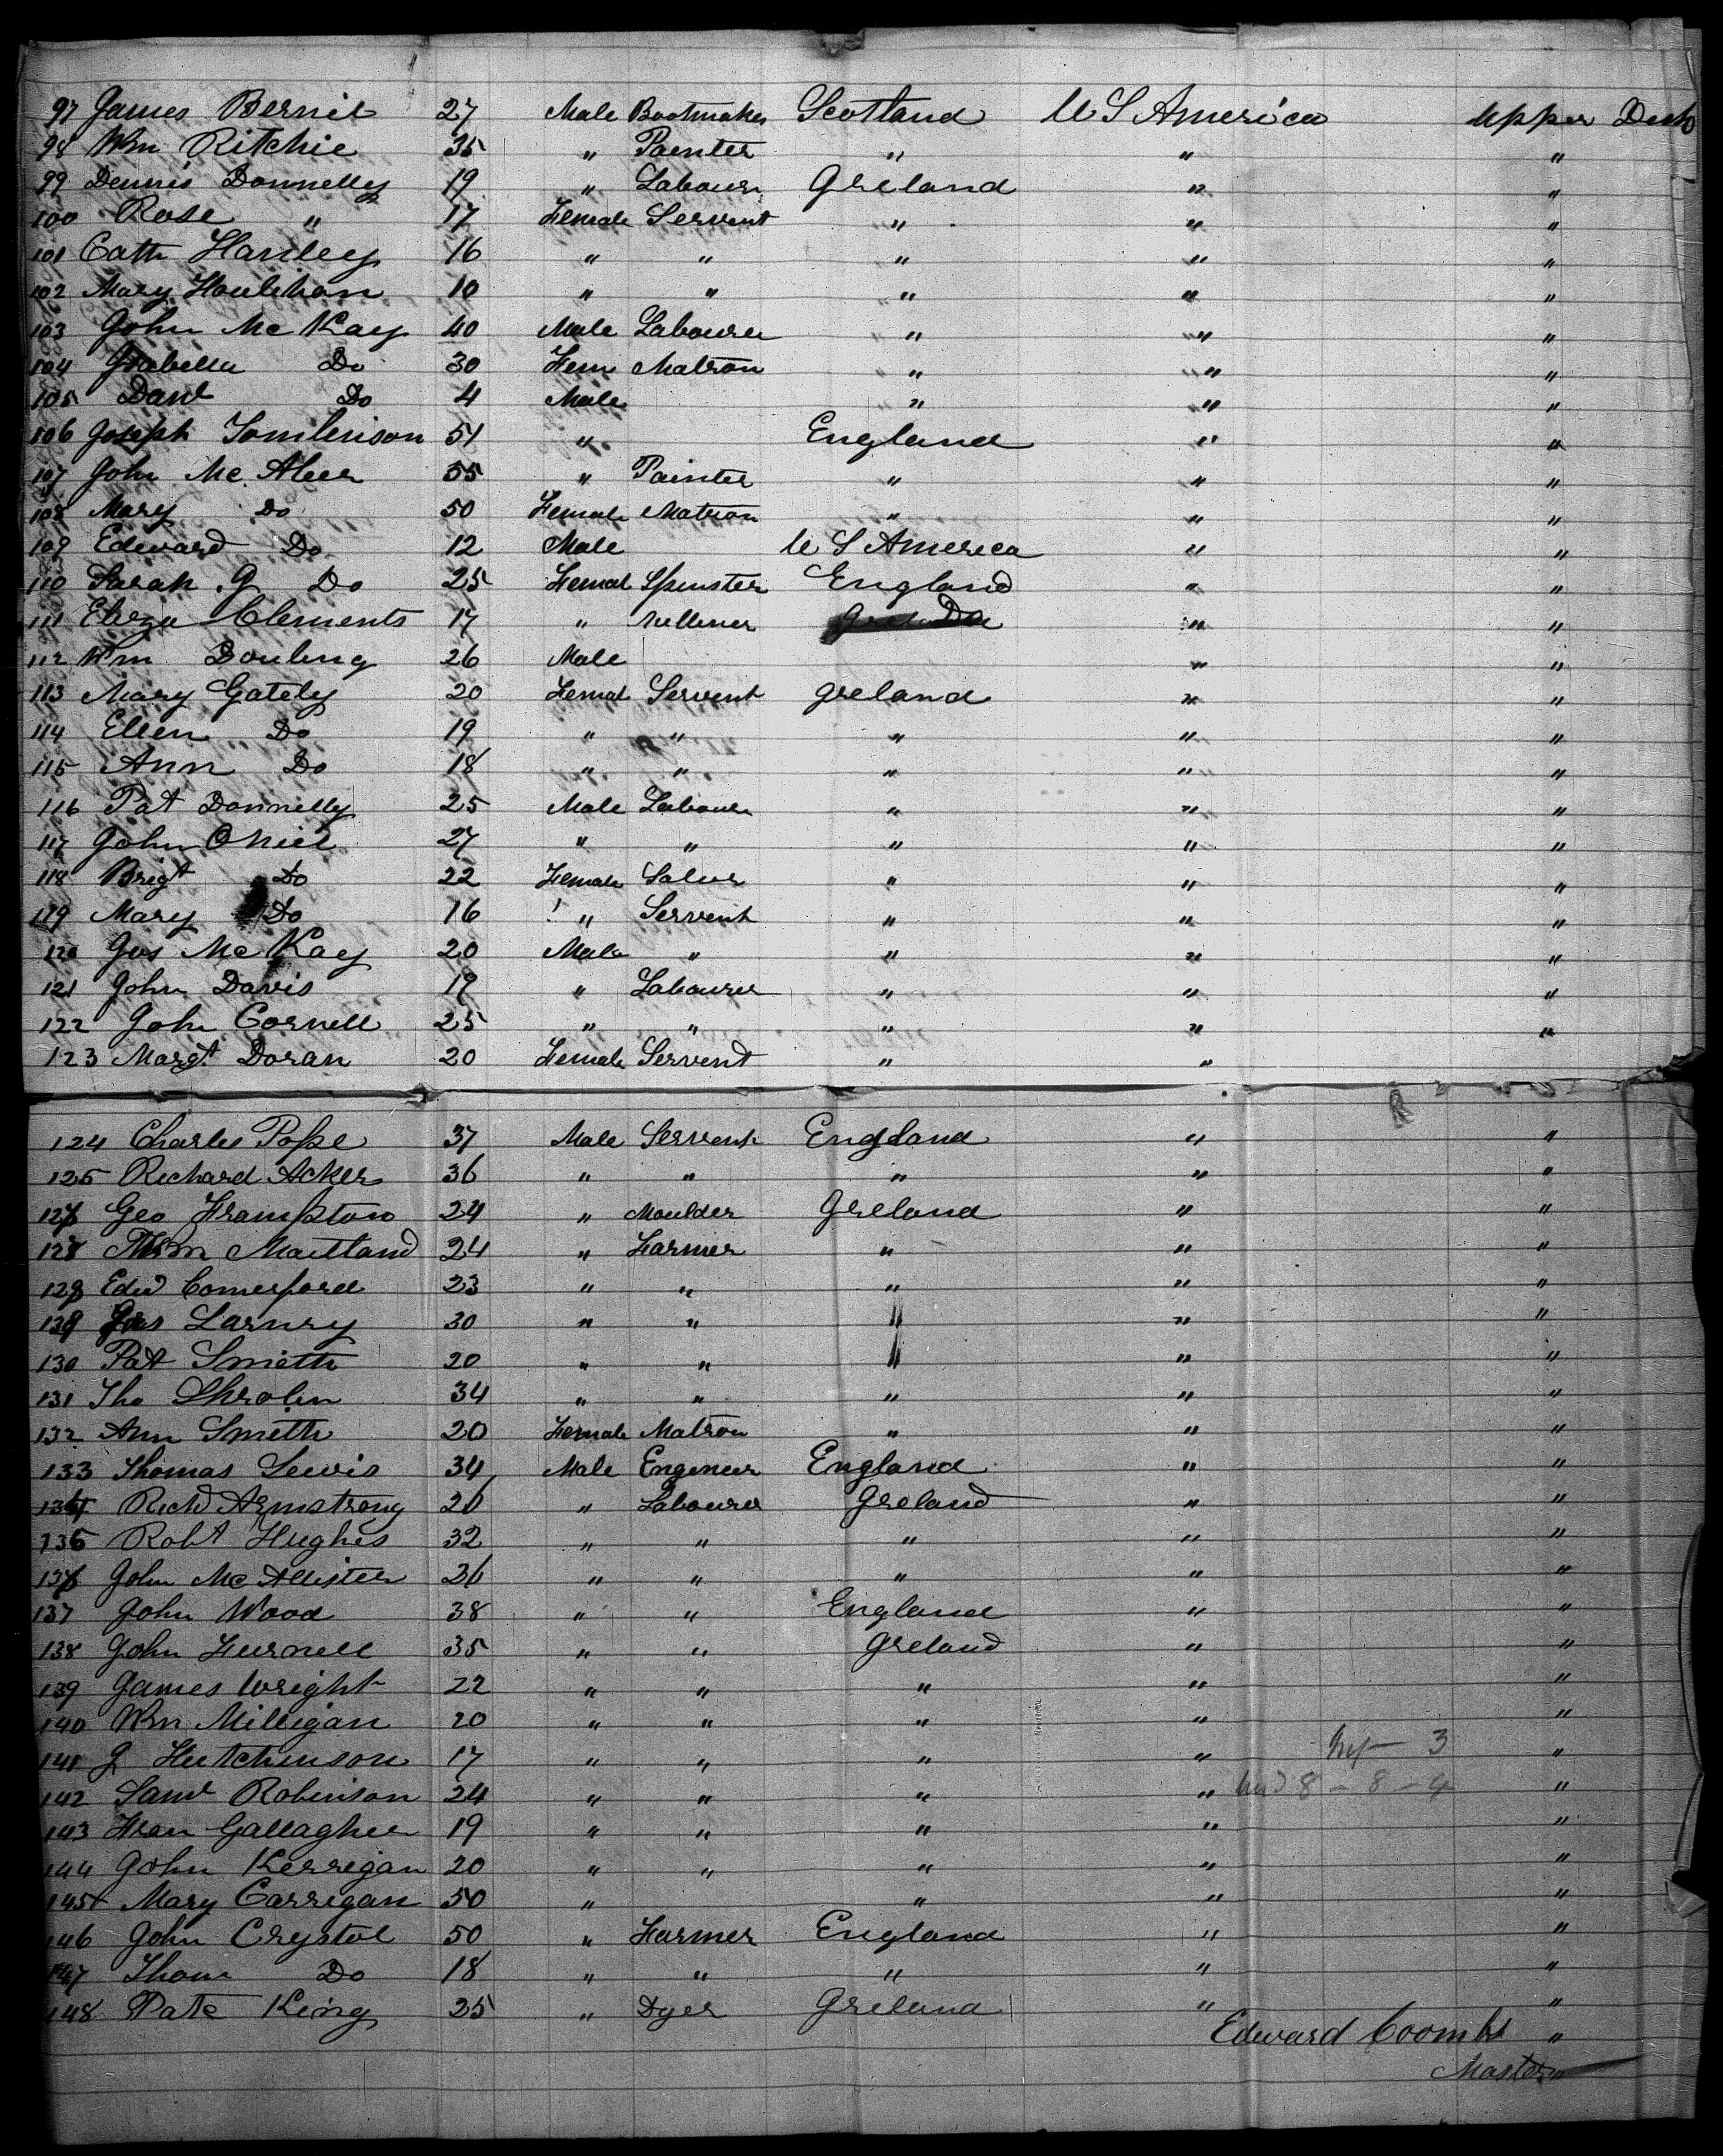 97 James Bernit 27 Male Bootmaker Scotland U S America Upper Deck
98 Wm Ritchie 35 " Painter " " "
99 Dennis Donnelly 19 " Labour Ireland " "
100 Rose " 17 Female Servent " " "
101 Cath Hanley 16 " " " " "
102 Mary Houlihan 10 " " " " "
103 John McKay 40 Male Labourer " " "
104 Isabella Do 30 Fem Matron " " "
105 Danl Do 4 Male " " "
106 Joseph Tomlinson 51 " England " "
107 John McAleer 55 " Painter " " "
108 Mary Do 50 Female Matron " " "
109 Edward Do 12 Male U S America " "
110 Sarah G Do 25 Femal Spinster England " "
111 Eliza Clements 17 " Millener Do " "
112 Wm Douling 26 Male " "
113 Mary Gately 20 Femal Servent Ireland " "
114 Ellen Do 19 " " " " "
115 Ann Do 18 " " " " "
116 Pat Donnelly 25 Male Labour " " "
117 John ONiel 27 " " " " "
118 Brigt Do 22 Female " " "
119 Mary Do 16 " Servent " " "
120 Jos McKay 20 Male " " " "
121 John Davis 19 " Labourer " " "
122 John Cornell 25 " " " " "
123 Margt Doran 20 Female Servent " "
124 Charles Pope 37 Male Servent England " "
125 Richard Acker 36 " " " " "
126 Geo Frampton 24 " Moulder Ireland " "
Maitland 24 " Farmer " " "
Edwd Comerford 23 " " " " "
Larnry 30 " " " " "
130 Pat Smith 20 " " " " "
131 Tho 34 " " " " "
132 Ann Smith 20 Female Matron " " "
133 Thomas Lewis 34 Male Engineer England " "
134 Richd Armstrong 26 " Labourer Ireland " "
135 Robt Hughes 32 " " " " "
136 John McAllister 26 " " " " "
137 John Wood 38 " " England " "
138 John Furnell 35 " " Ireland " "
139 James Wright 22 " " " " "
140 Wm Milligan 20 " " " " "
141 J Hutchinson 17 " " " " 3 "
142 Saml Robinson 24 " " " " 8 - 8 - 4 "
143 Fran Gallagher 19 " " " " "
144 John Kerrigan 20 " " " " "
145 Mary Carrigan 50 " " " "
146 John Crystol 50 " Farmer England " "
147 Thom Do 18 " " " " "
148 Patk King 25 " Dyer Ireland " "
Edward Coombs "
Master "